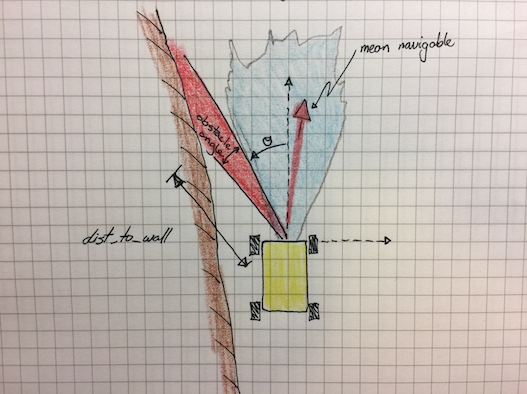 mean navigable
obstacle
angle
θ
dist_to_wall